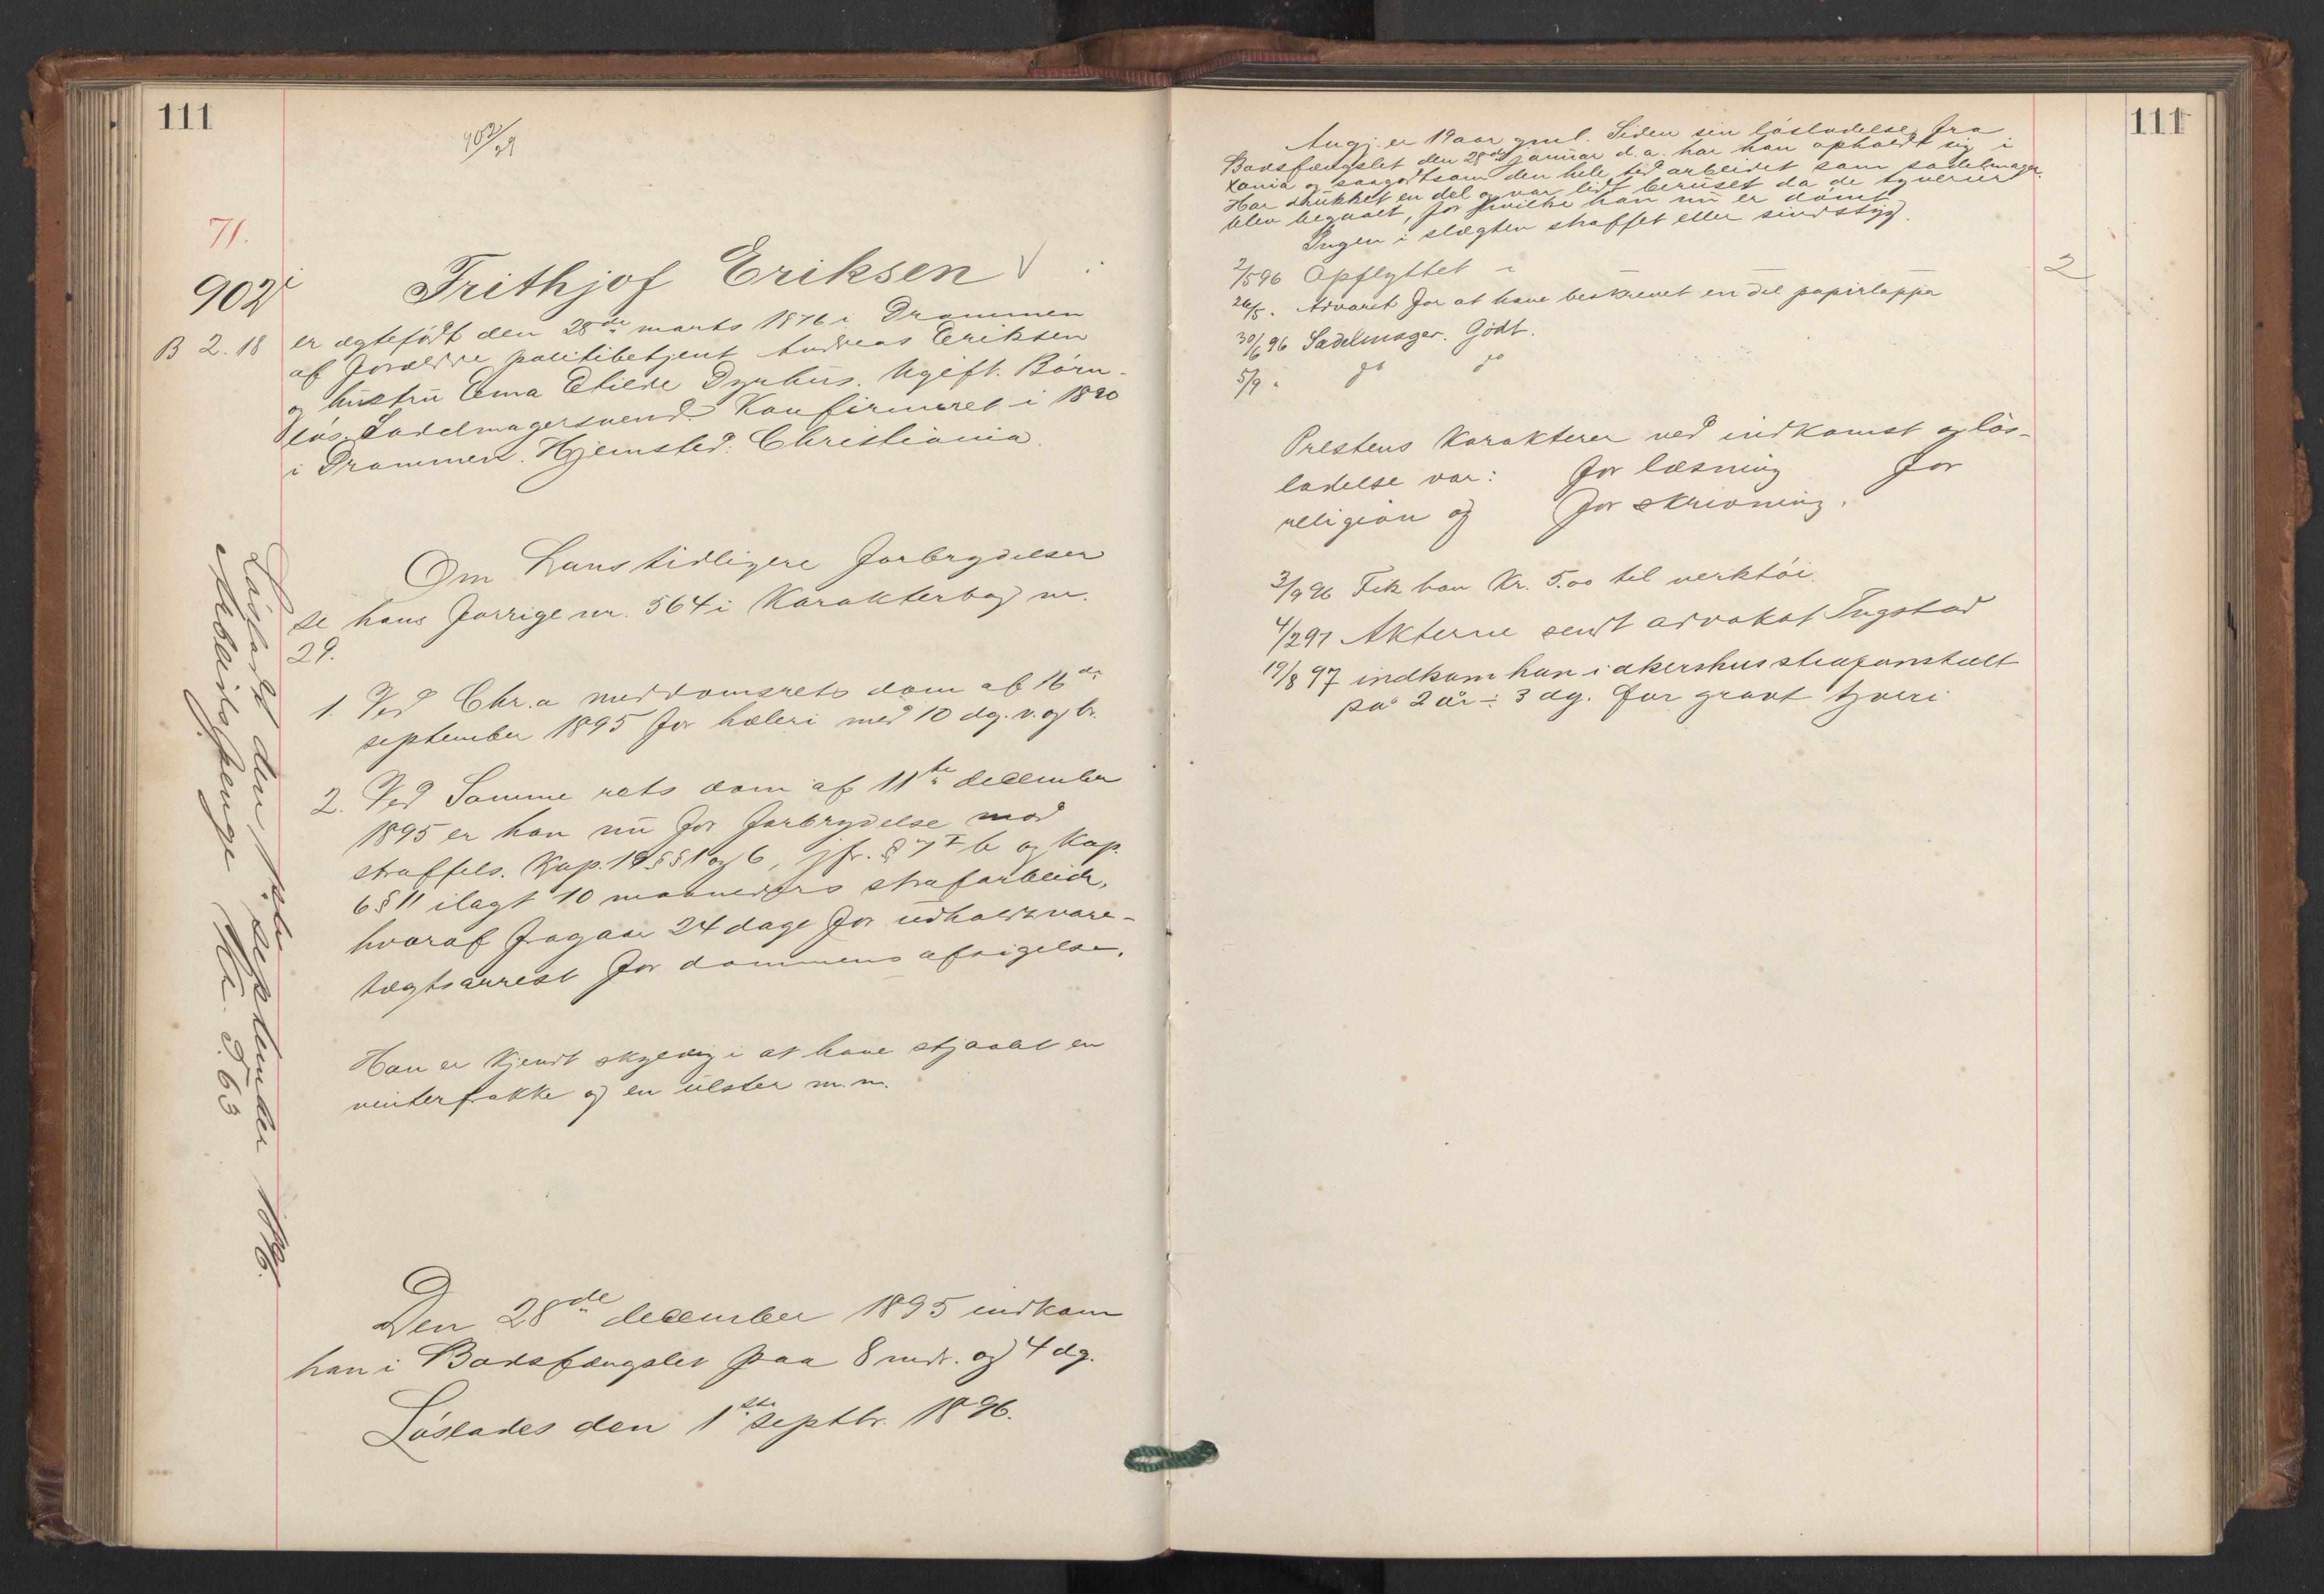 111
902/29
71.
902
Frithjof Eriksen
B 2.18
er ægtefödt den 28de marts 1876 i Drammen
af forældre politibetjent Andreas Eriksen
og hustru Ema Etilde Dyrhus. Ugift. Börn-
lös. Sadelmagersvend. Konfirmeret i 1890
i Drammen. Hjemsted: Christiania.
Om hans tidligere forbrydelser
se hans forrige nr. 564 i Karakterbog nr.
29.
1. Ved Chr.a meddomsrets dom af 16de
september 1895 for hæleri med 10 dg. v. og br.
2. Ved Samme rets dom af 11te december
1895 er han nu for forbrydelse mod
straffels. Kap. 19 §§ 1 og 6, jfr. § 7 I b og Kap.
6 § 11 ilagt 10 maaneders strafarbeide,
hvoraf fragaar 24 dage for udholdt vare-
tægtsarrest for dommens afsigelse.
Han er kjendt skyldig i at have stjaalet en
vinterfrakke og en ulster m.m.
Den 28de december 1895 indkom
han i Bodsfængslet paa 8 mdr. og 4 dg.
Löslades den 1ste septbr. 1896.
Lösladt den 1ste september 1896.
Arbeidspenge Kr. 5.63
111
Angj. er 19 aar gml. Siden sin lösladelse fra
Bodsfængslet den 28de januar d.a. har han opholdt sig i
Xania og saagodtsom den hele tid arbeidet som sadelmager.
Har drukket en del og var lidt beruset da de tyverier
blev begaaet, for hvilke han nu er dömt.
Ingen i slægten straffet eller sindssyg.
2/5 96 Opflyttet
2
26/5. Advaret for at have beskrevet en del papirlapper
30/6 96 Sadelmager. Godt.
5/9 " do do
Prestens Karakterer ved indkomst og lös-
ladelse var: for læsning for
religion og for skrivning.
3/9 96 Fik han Kr. 5.00 til verktöi.
4/2 97 Akterne sendt advokat Tugstad
19/8 97 indkom han i akershus strafanstalt
på 2 år ÷ 3 dg. for grovt tyveri